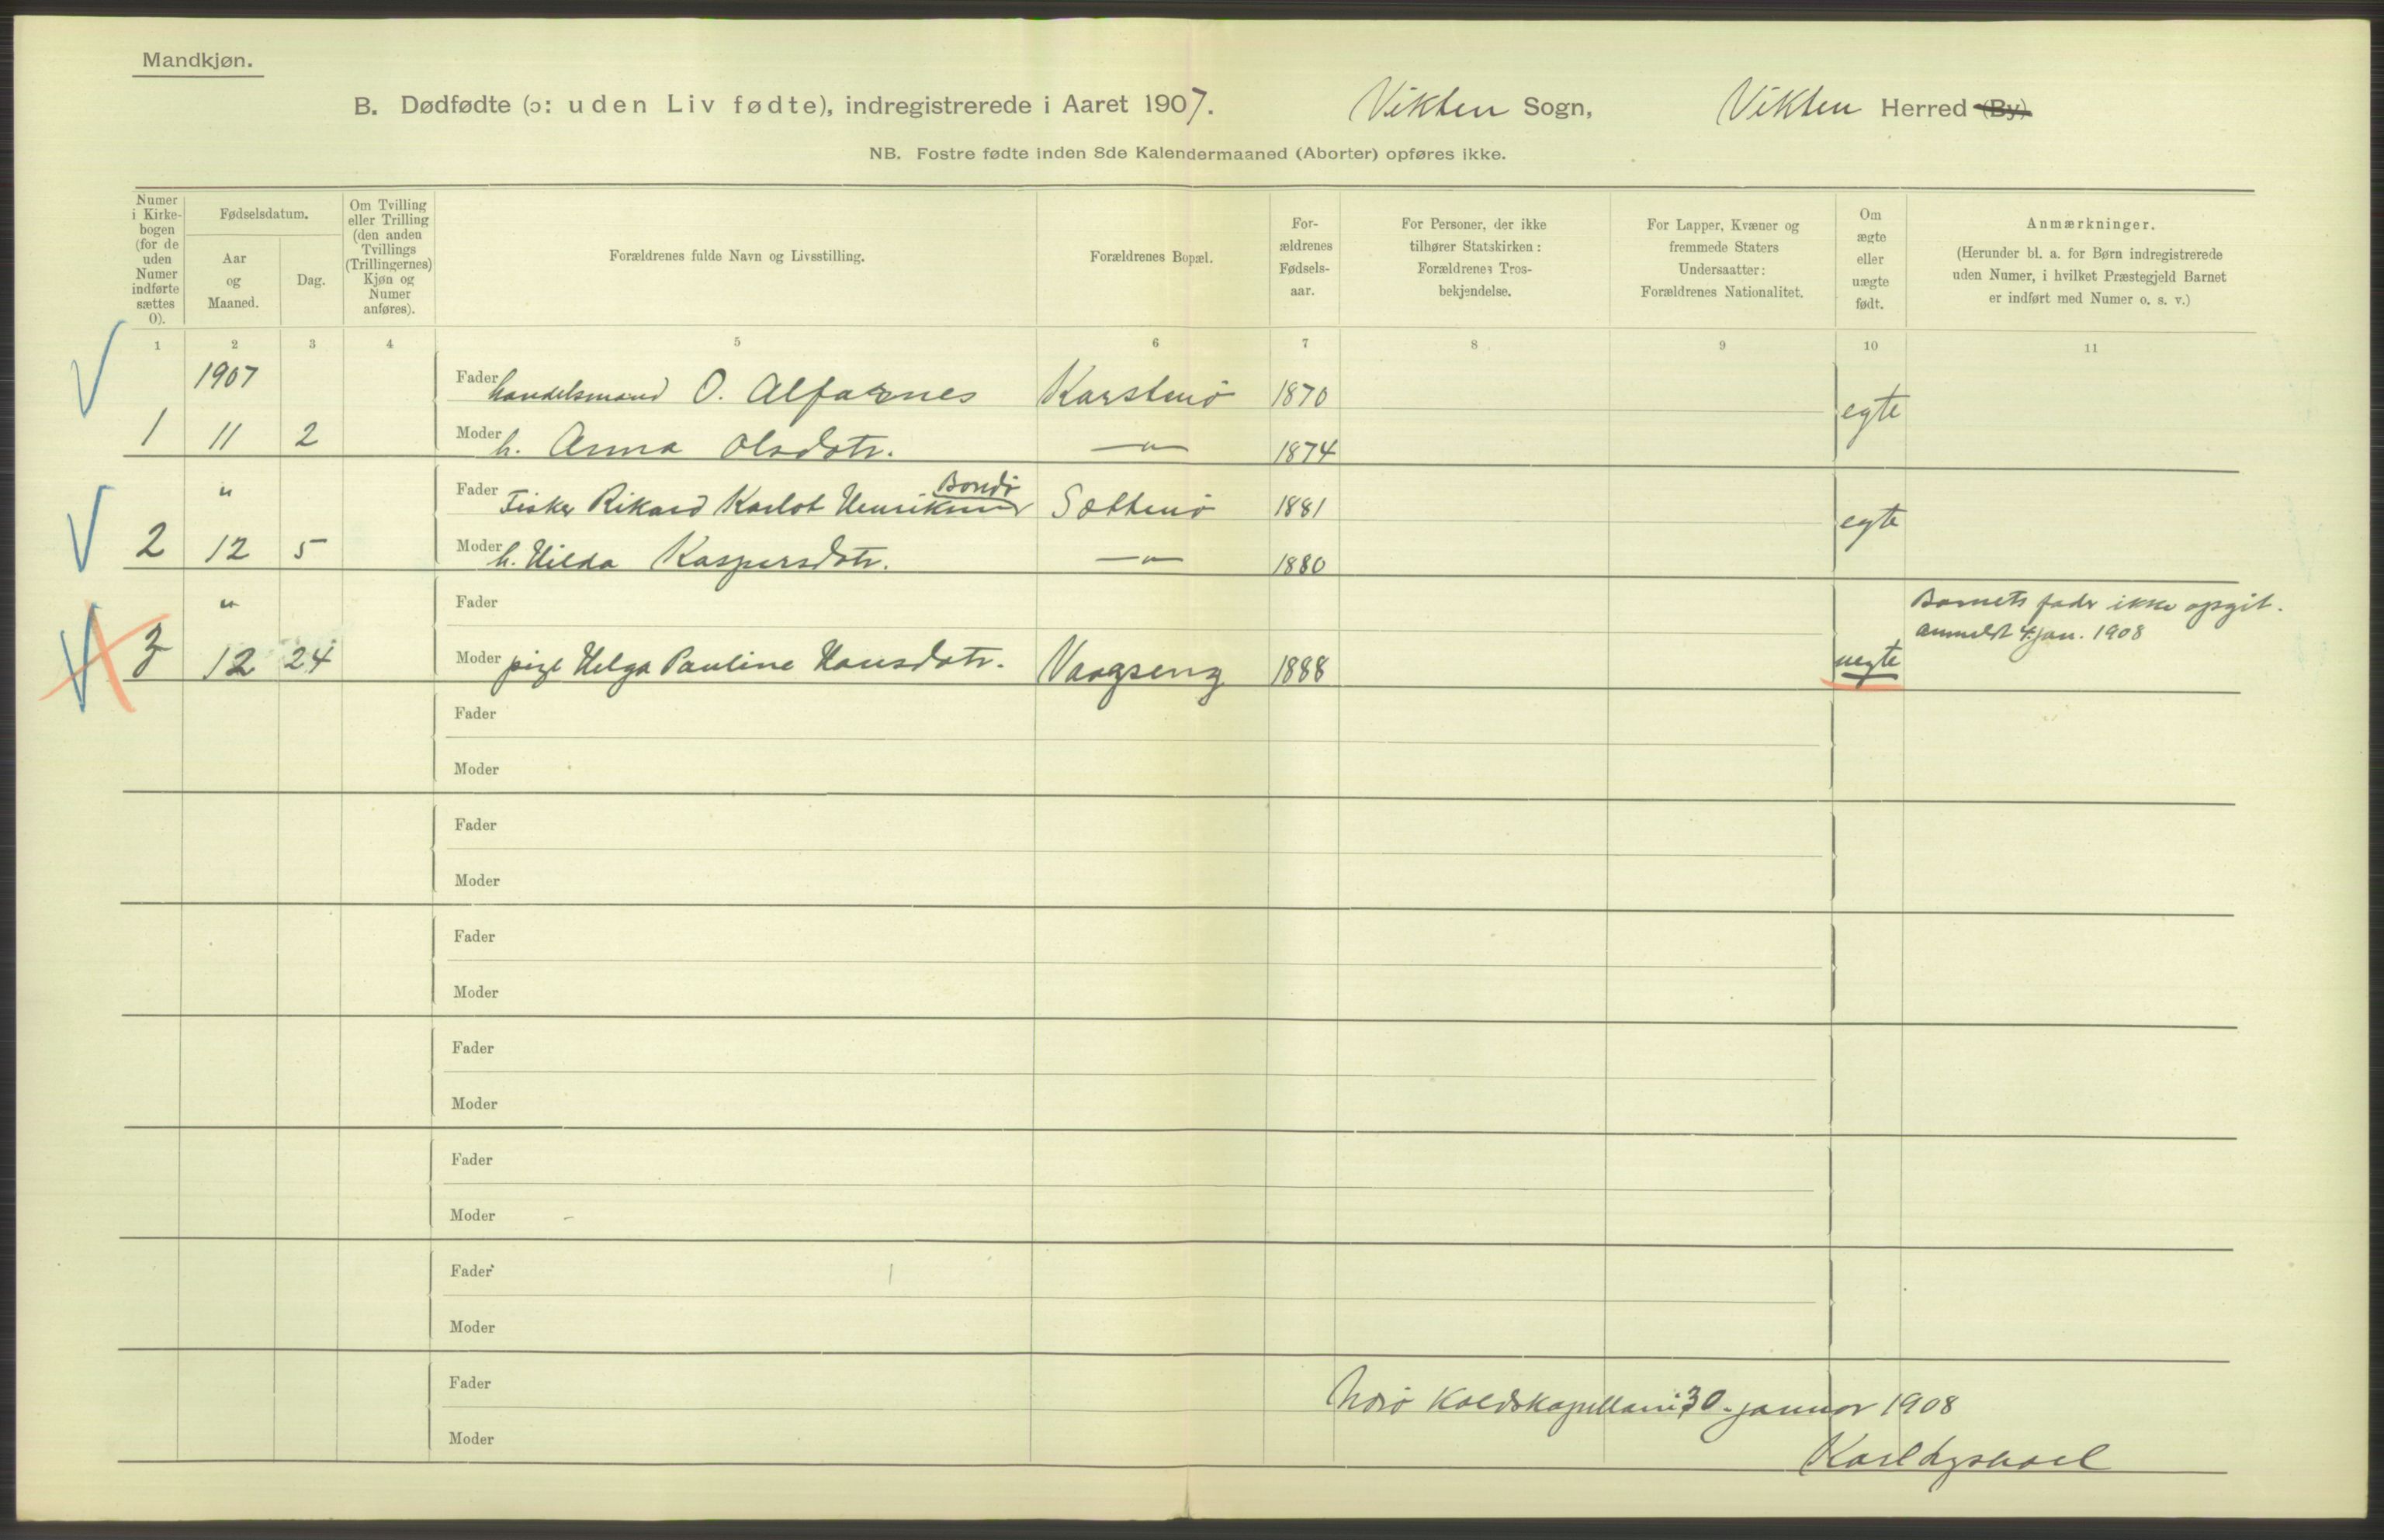 Mandkjøn.
B. Dødfødte (ɔ: uden Liv fødte), indregistrerede i Aaret 1907. Vikten Sogn, Vikten Herred (By)
NB. Fostre fødte inden 8de Kalendermaaned (Aborter) opføres ikke.
Numer i Kirke-bogen (for de uden Numer indførte sættes 0).
Fødselsdatum.
Aar og Maaned.
Dag.
Om Tvilling eller Trilling (den anden Tvillings (Trillingernes) Kjøn og Numer anføres).
Forældrenes fulde Navn og Livsstilling.
Forældrenes Bopæl.
For-ældrenes Fødsels-aar.
For Personer, der ikke tilhører Statskirken: Forældrenes Tros-bekjendelse.
For Lapper, Kvæner og fremmede Staters Undersaatter: Forældrenes Nationalitet.
Om ægte eller uægte født.
Anmærkninger.
(Herunder bl. a. for Børn indregistrerede uden Numer, i hvilket Præstegjeld Barnet er indført med Numer o. s. v.)
1 2 3 4 5 6 7 8 9 10 11
1907 Fader handelsmand O. Alfarnes Karstenø 1870 egte
1 11 2 Moder h. Anna Olsdotr. —"— 1874
" Fader Fisker Rikard Karlot Henriksen Bondø Sættenø 1881 egte
2 12 5 Moder h. Hilda Kaspersdotr. —"— 1880
" Fader Barnets fader ikke opgit.
anmeldt 4. jan. 1908
3 12 24 Moder pige Helga Pauline Hansdotr. Vaagseng 1888 uegte
Fader
Moder
Fader
Moder
Fader
Moder
Fader
Moder
Fader
Moder
Fader
Moder
Fader
Moder
30. januar 1908
Karl